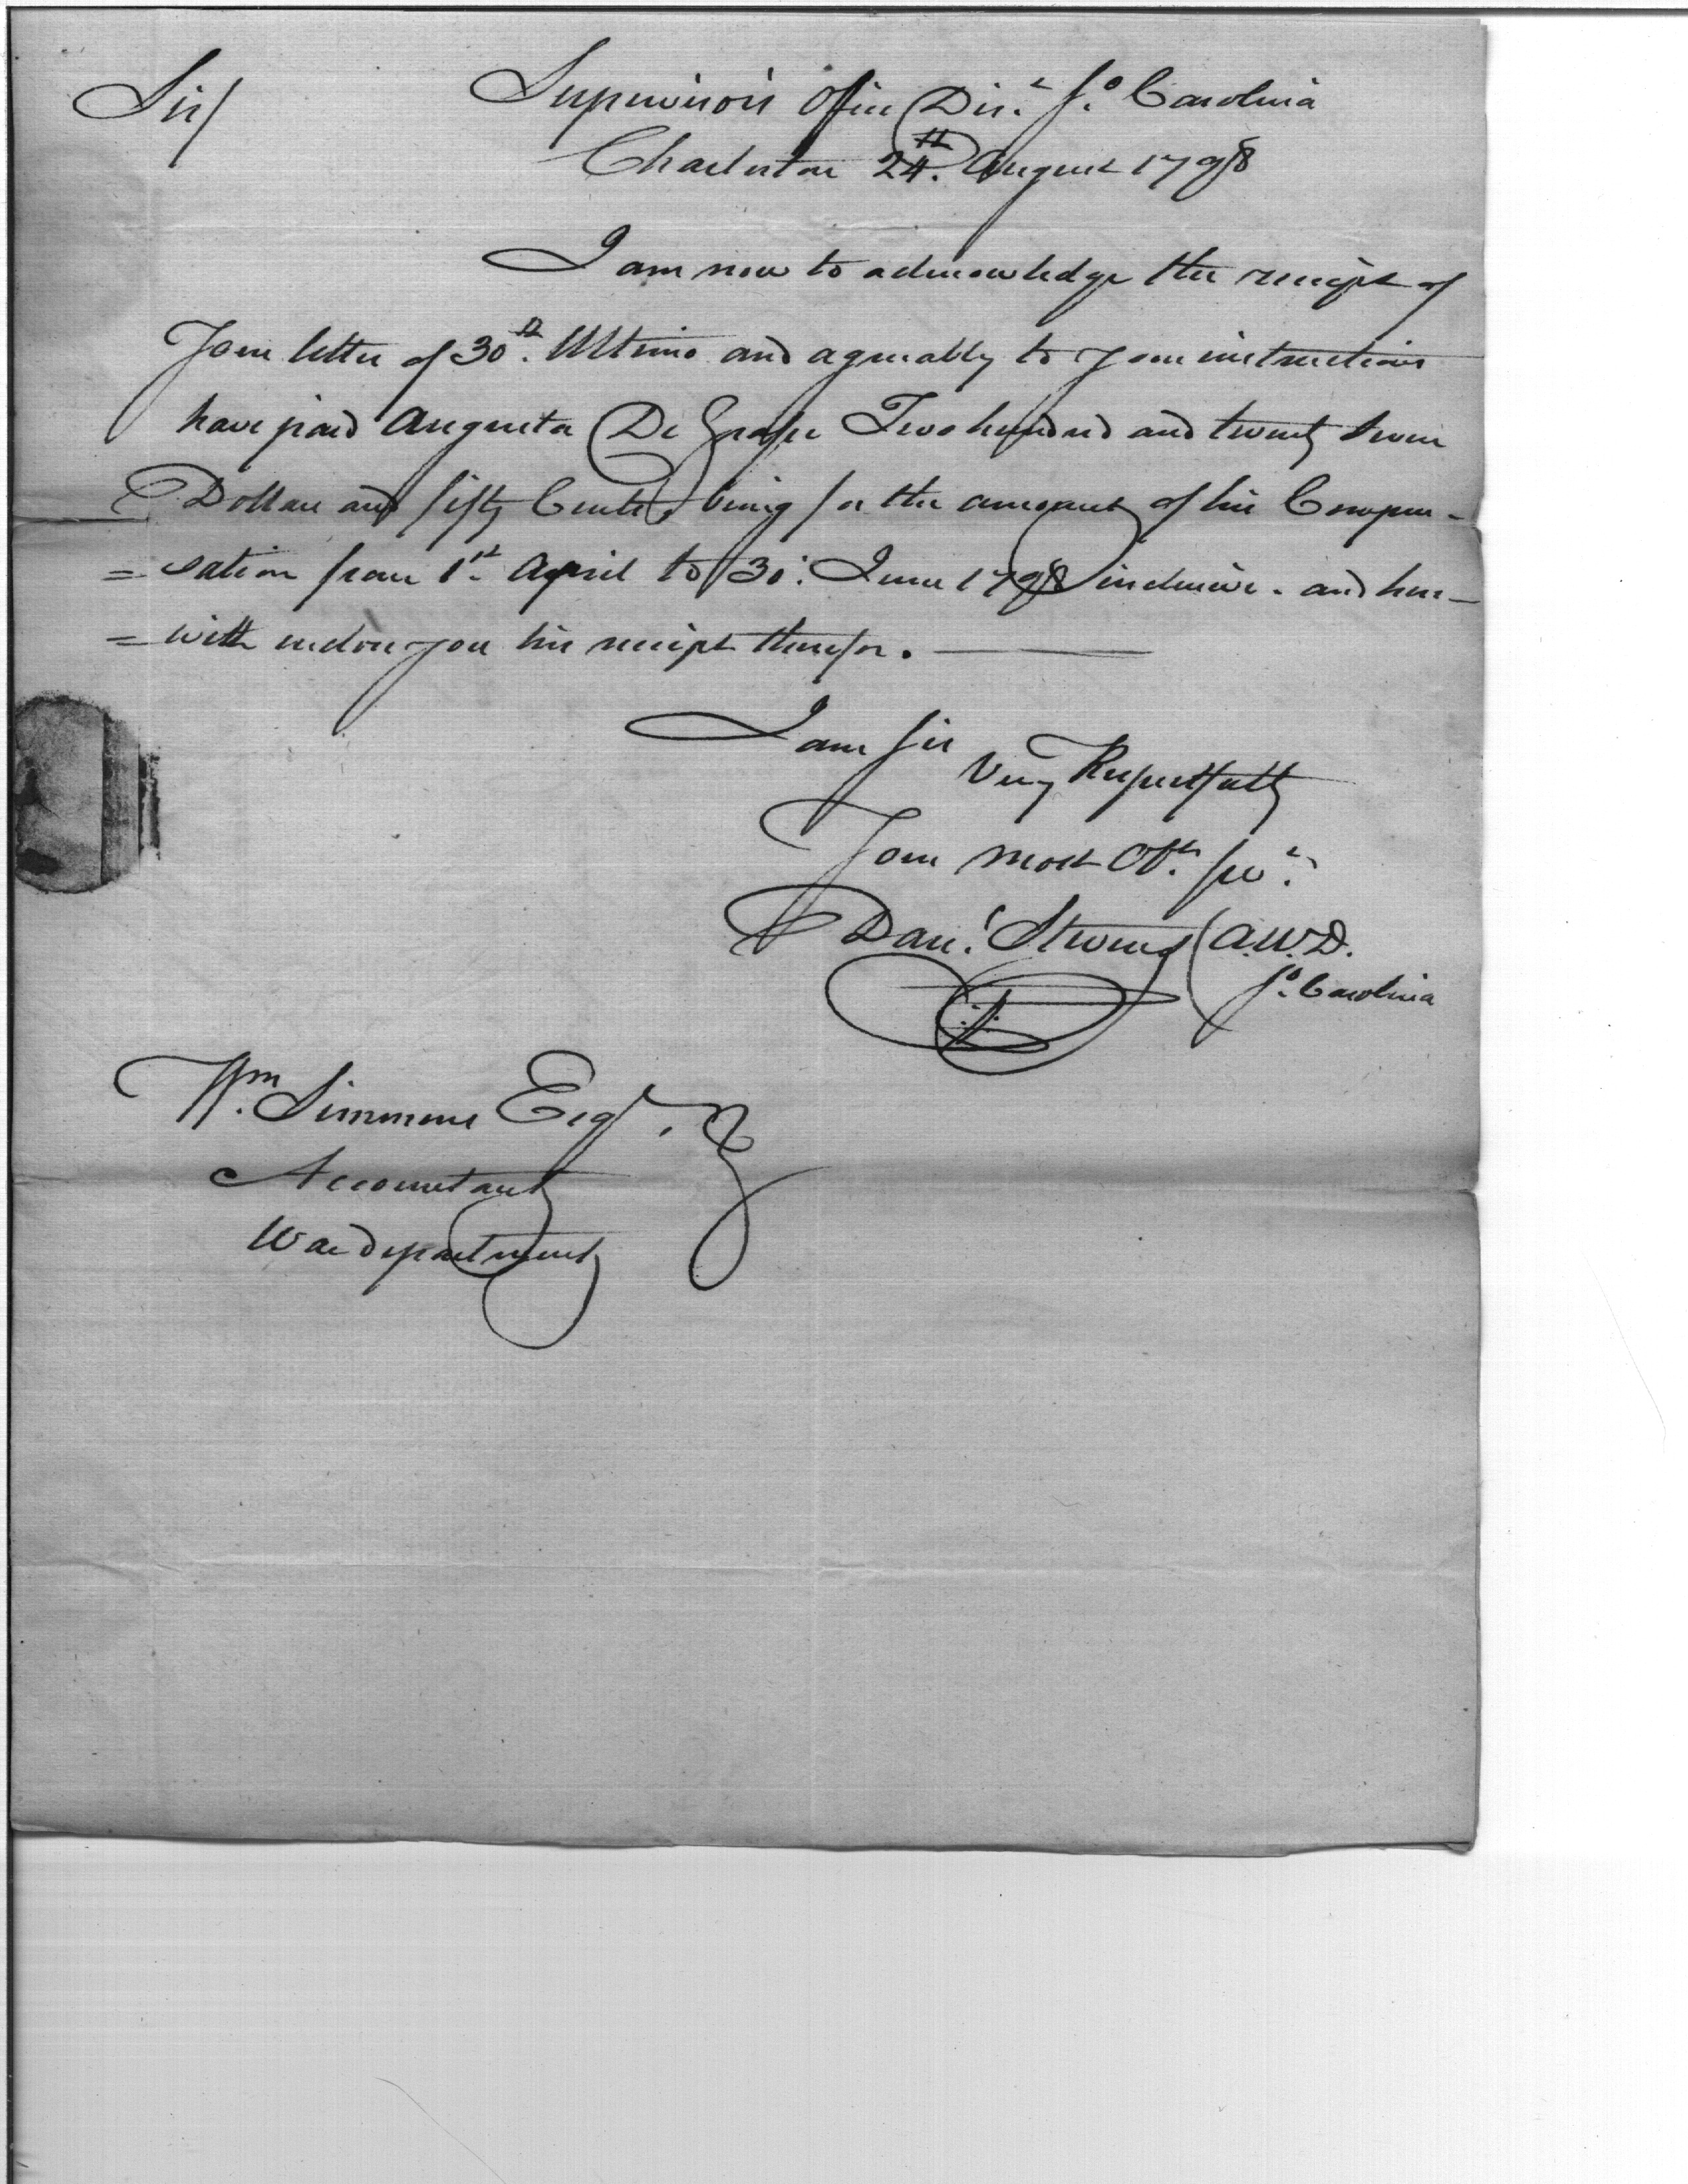 Sir/
Supervisor's Office Dist. So. Carolina
Charleston 24th. August 1798
I am now to acknowledge the receipt of
Your letter of 30th. Ultimo and agreeably to your instructions
have paid Augusta De Grasse Two hundred and twenty seven
Dollars and fifty Cents, being for the amount of his Compen-
=sation from 1st. April to 30: June 1798 inclusive. and here-
=with inclose you his receipt therefor.
I am Sir
Very Respectfully
Your most Obt. Sert.
Danl. Stevens A.W.D.
So. Carolina
Wm. Simmons Esqr.
Accountant
War department